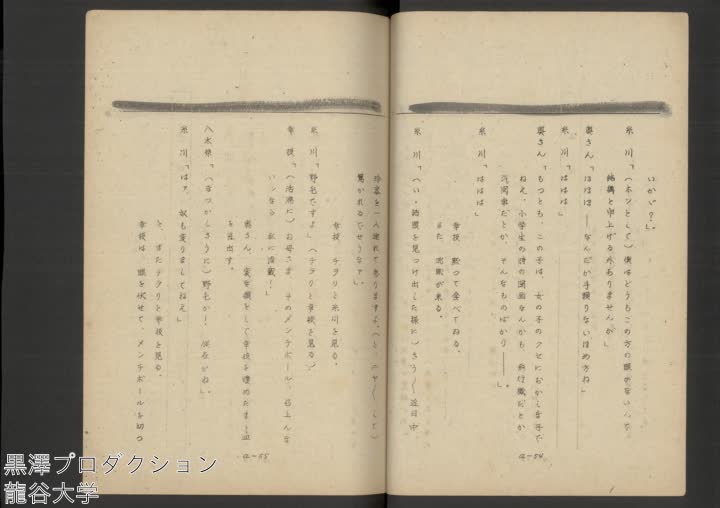 いかい？」
糸川「（ホンとして）僕はどうもこの方の眼がないんで、
結構と申上げる外ありませんが」
奥さん「ほほほ――なんだか手頼りないほめ方ね」
糸川「ははは」
奥さん「もつとも、この子は、女の子のクセにおかしな子で
ねえ、小学生の時の図画なんかも、飛行機だとか
汽関車だとか、そんなものばかり――」
糸川「ははは」
幸枝、黙つて食べてゐる。
また、沈黙が来る。
糸川「（へい、話題を見つけ出した様に）さう〳〵近日中
4-54
珍客を一人連れて参りますよ。（と、ニヤ〳〵して）
驚かれるでせうなァ」
幸枝、チラリと糸川を見る。
糸川「野毛ですよ」（チラリと幸枝を見る）
幸枝「（活溌に）お母さま、そのメンチボール、召上んな
いンなら私に頂戴！」
奥さん、変な顔をして幸枝を
を差出す。
八木原「（なつかしさうに）野毛か！　何在かね」
糸川「はァ、奴も変りましてねえ」
と、またチラリと幸枝を見る。
幸枝は眼を伏せて、メンチボールを切つ
4-55
黒澤プロダクション
龍谷大学